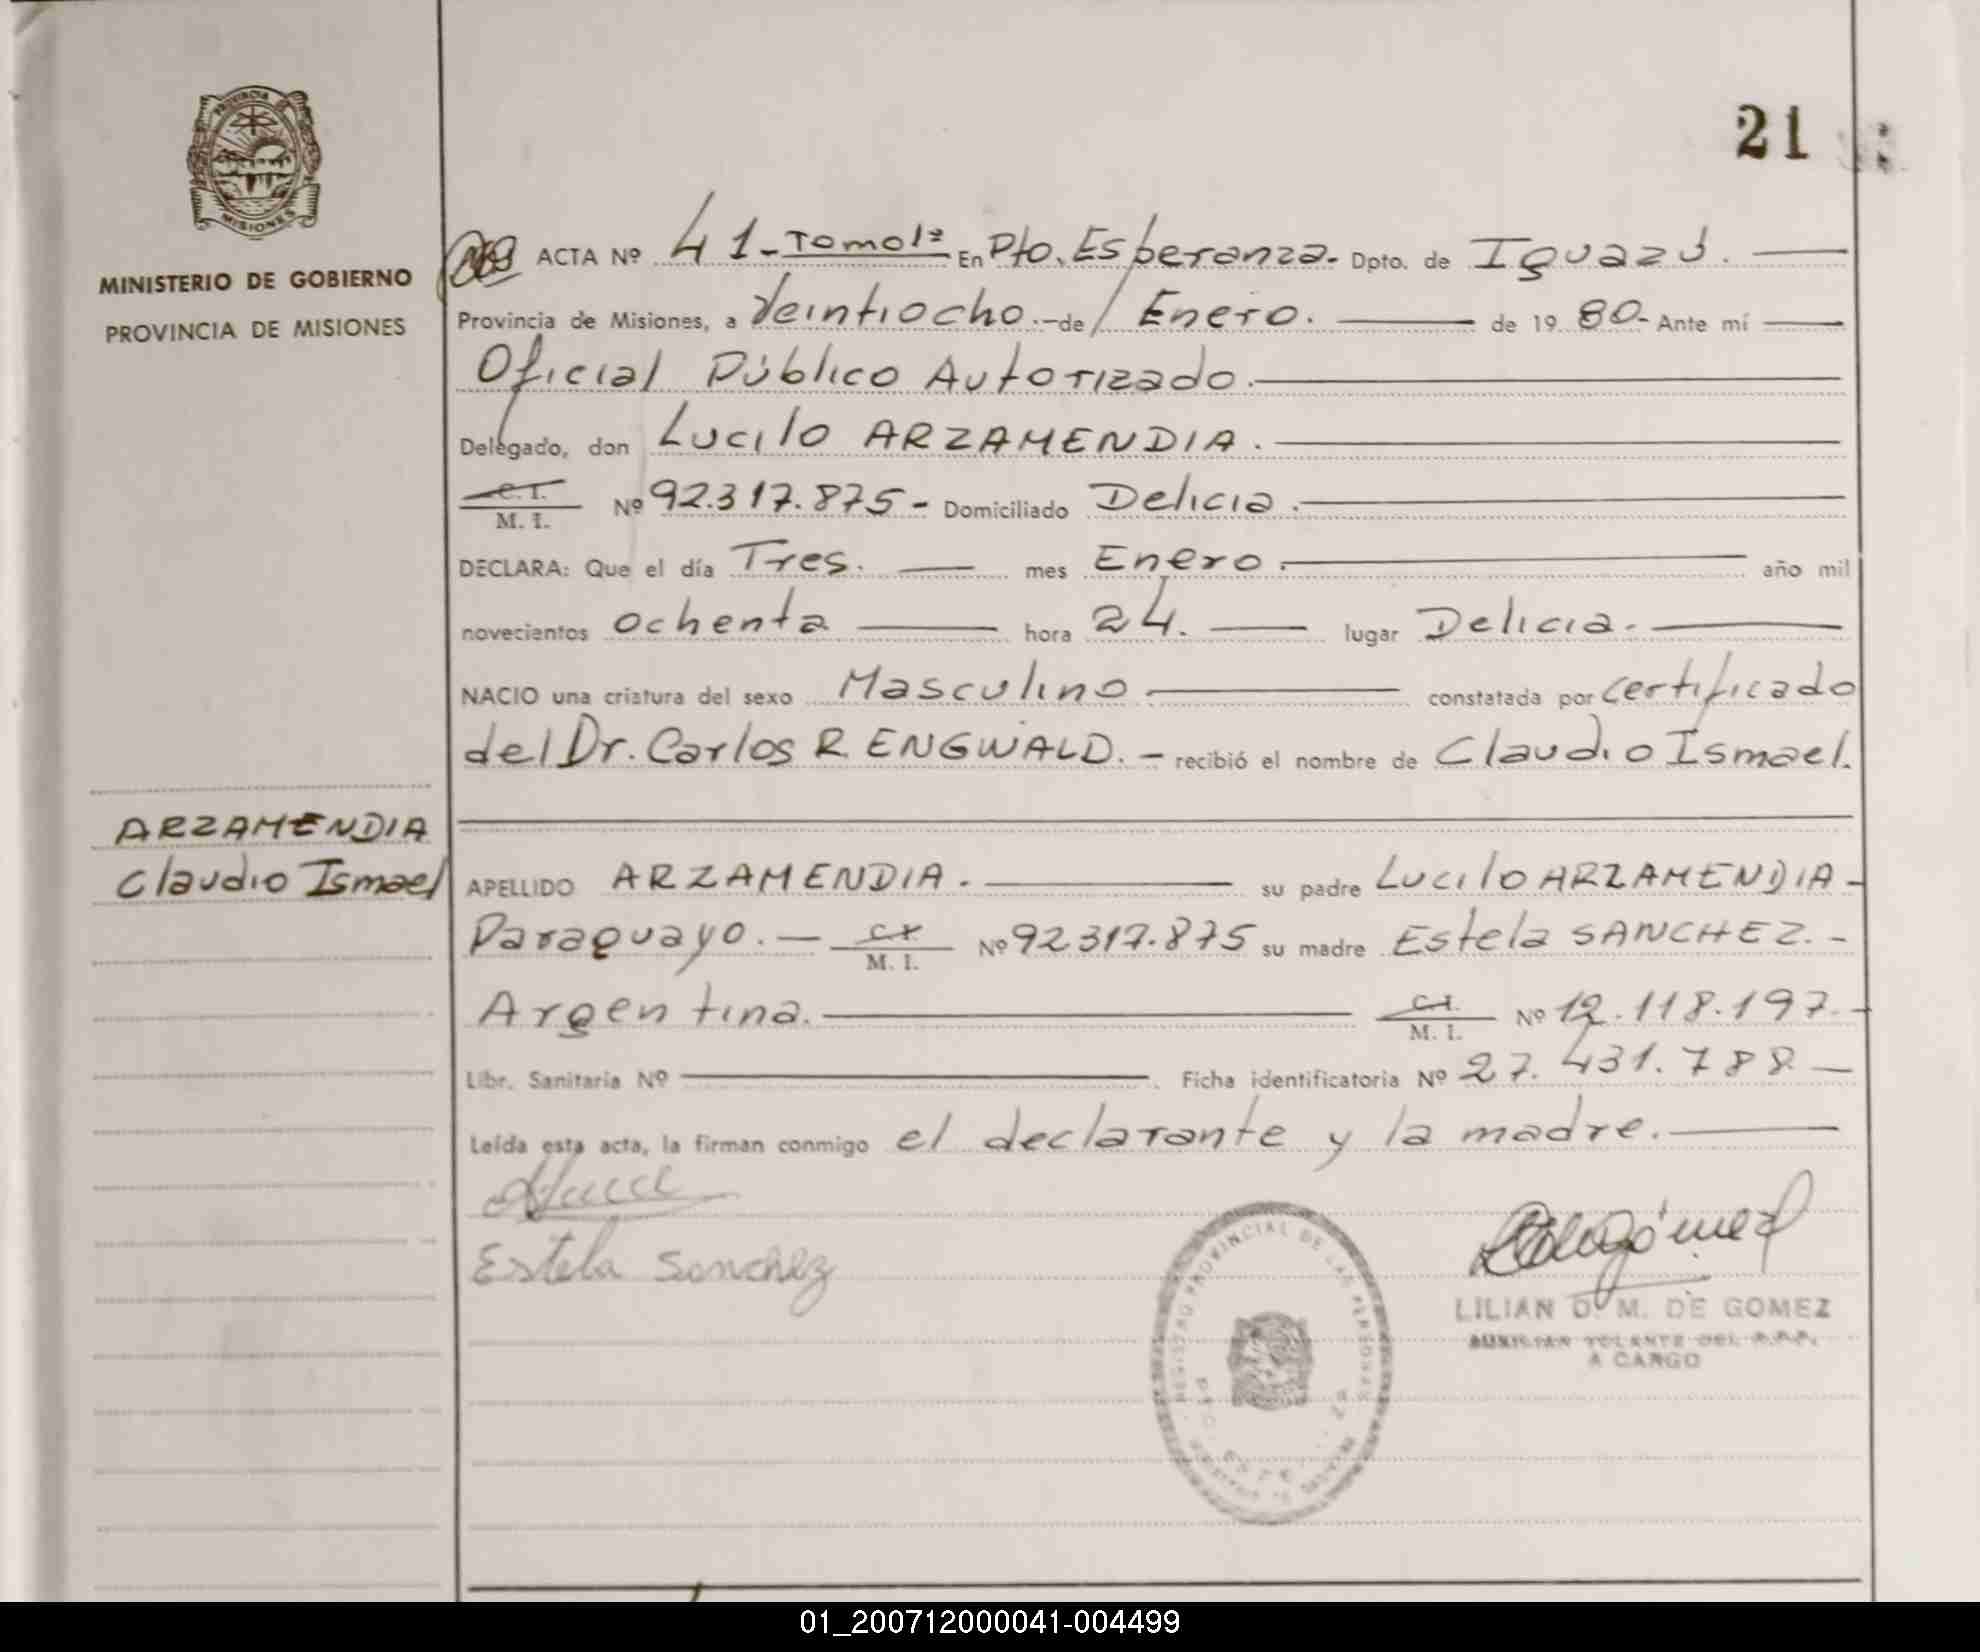 PROVINCIA DE
MISIONES
MINISTERIO DE GOBIERNO
PROVINCIA DE MISIONES
21
ACTA Nº 41 - Tomo 1º En Pto. Esperanza - Dpto. de Iguazú.
Provincia de Misiones, a Veintiocho. - de / Enero. de 19 80 - Ante mí
Oficial Público Autorizado.
Delegado, don Lucilo ARZAMENDIA.
C. I.
M. I. Nº 92.317.875 - Domiciliado Delicia.
DECLARA: Que el día Tres. mes Enero. año mil
novecientos ochenta hora 24. lugar Delicia.
NACIO una criatura del sexo Masculino constatada por certificado
del Dr. Carlos R ENGWALD. - recibió el nombre de Claudio Ismael.
ARZAMENDIA
Claudio Ismael
APELLIDO ARZAMENDIA. su padre Lucilo ARZAMENDIA -
Paraguayo. - C.I.
M. I. Nº 92317.875 su madre Estela SANCHEZ. -
Argentina. C.I.
M. I. Nº 12.118.197. -
Libr. Sanitaria Nº Ficha identificatoria Nº 27.431.788 -
Leída esta acta, la firman conmigo el declarante y la madre.
Estela Sanchez
REGISTRO PROVINCIAL DE LAS PERSONAS
LILIAN D. M. DE GOMEZ
AUXILIAR VOLANTE DEL R.P.P.
A CARGO
01_200712000041-004499